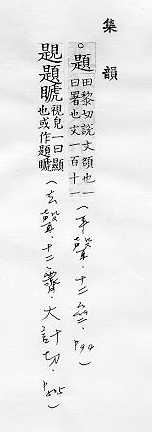 集韻
。題田黎切說文頟也一曰署也文一百十一(平聲·十二齊·P94)
題視皃一曰顯也或作題(去聲·十二霽·大計切·P505)